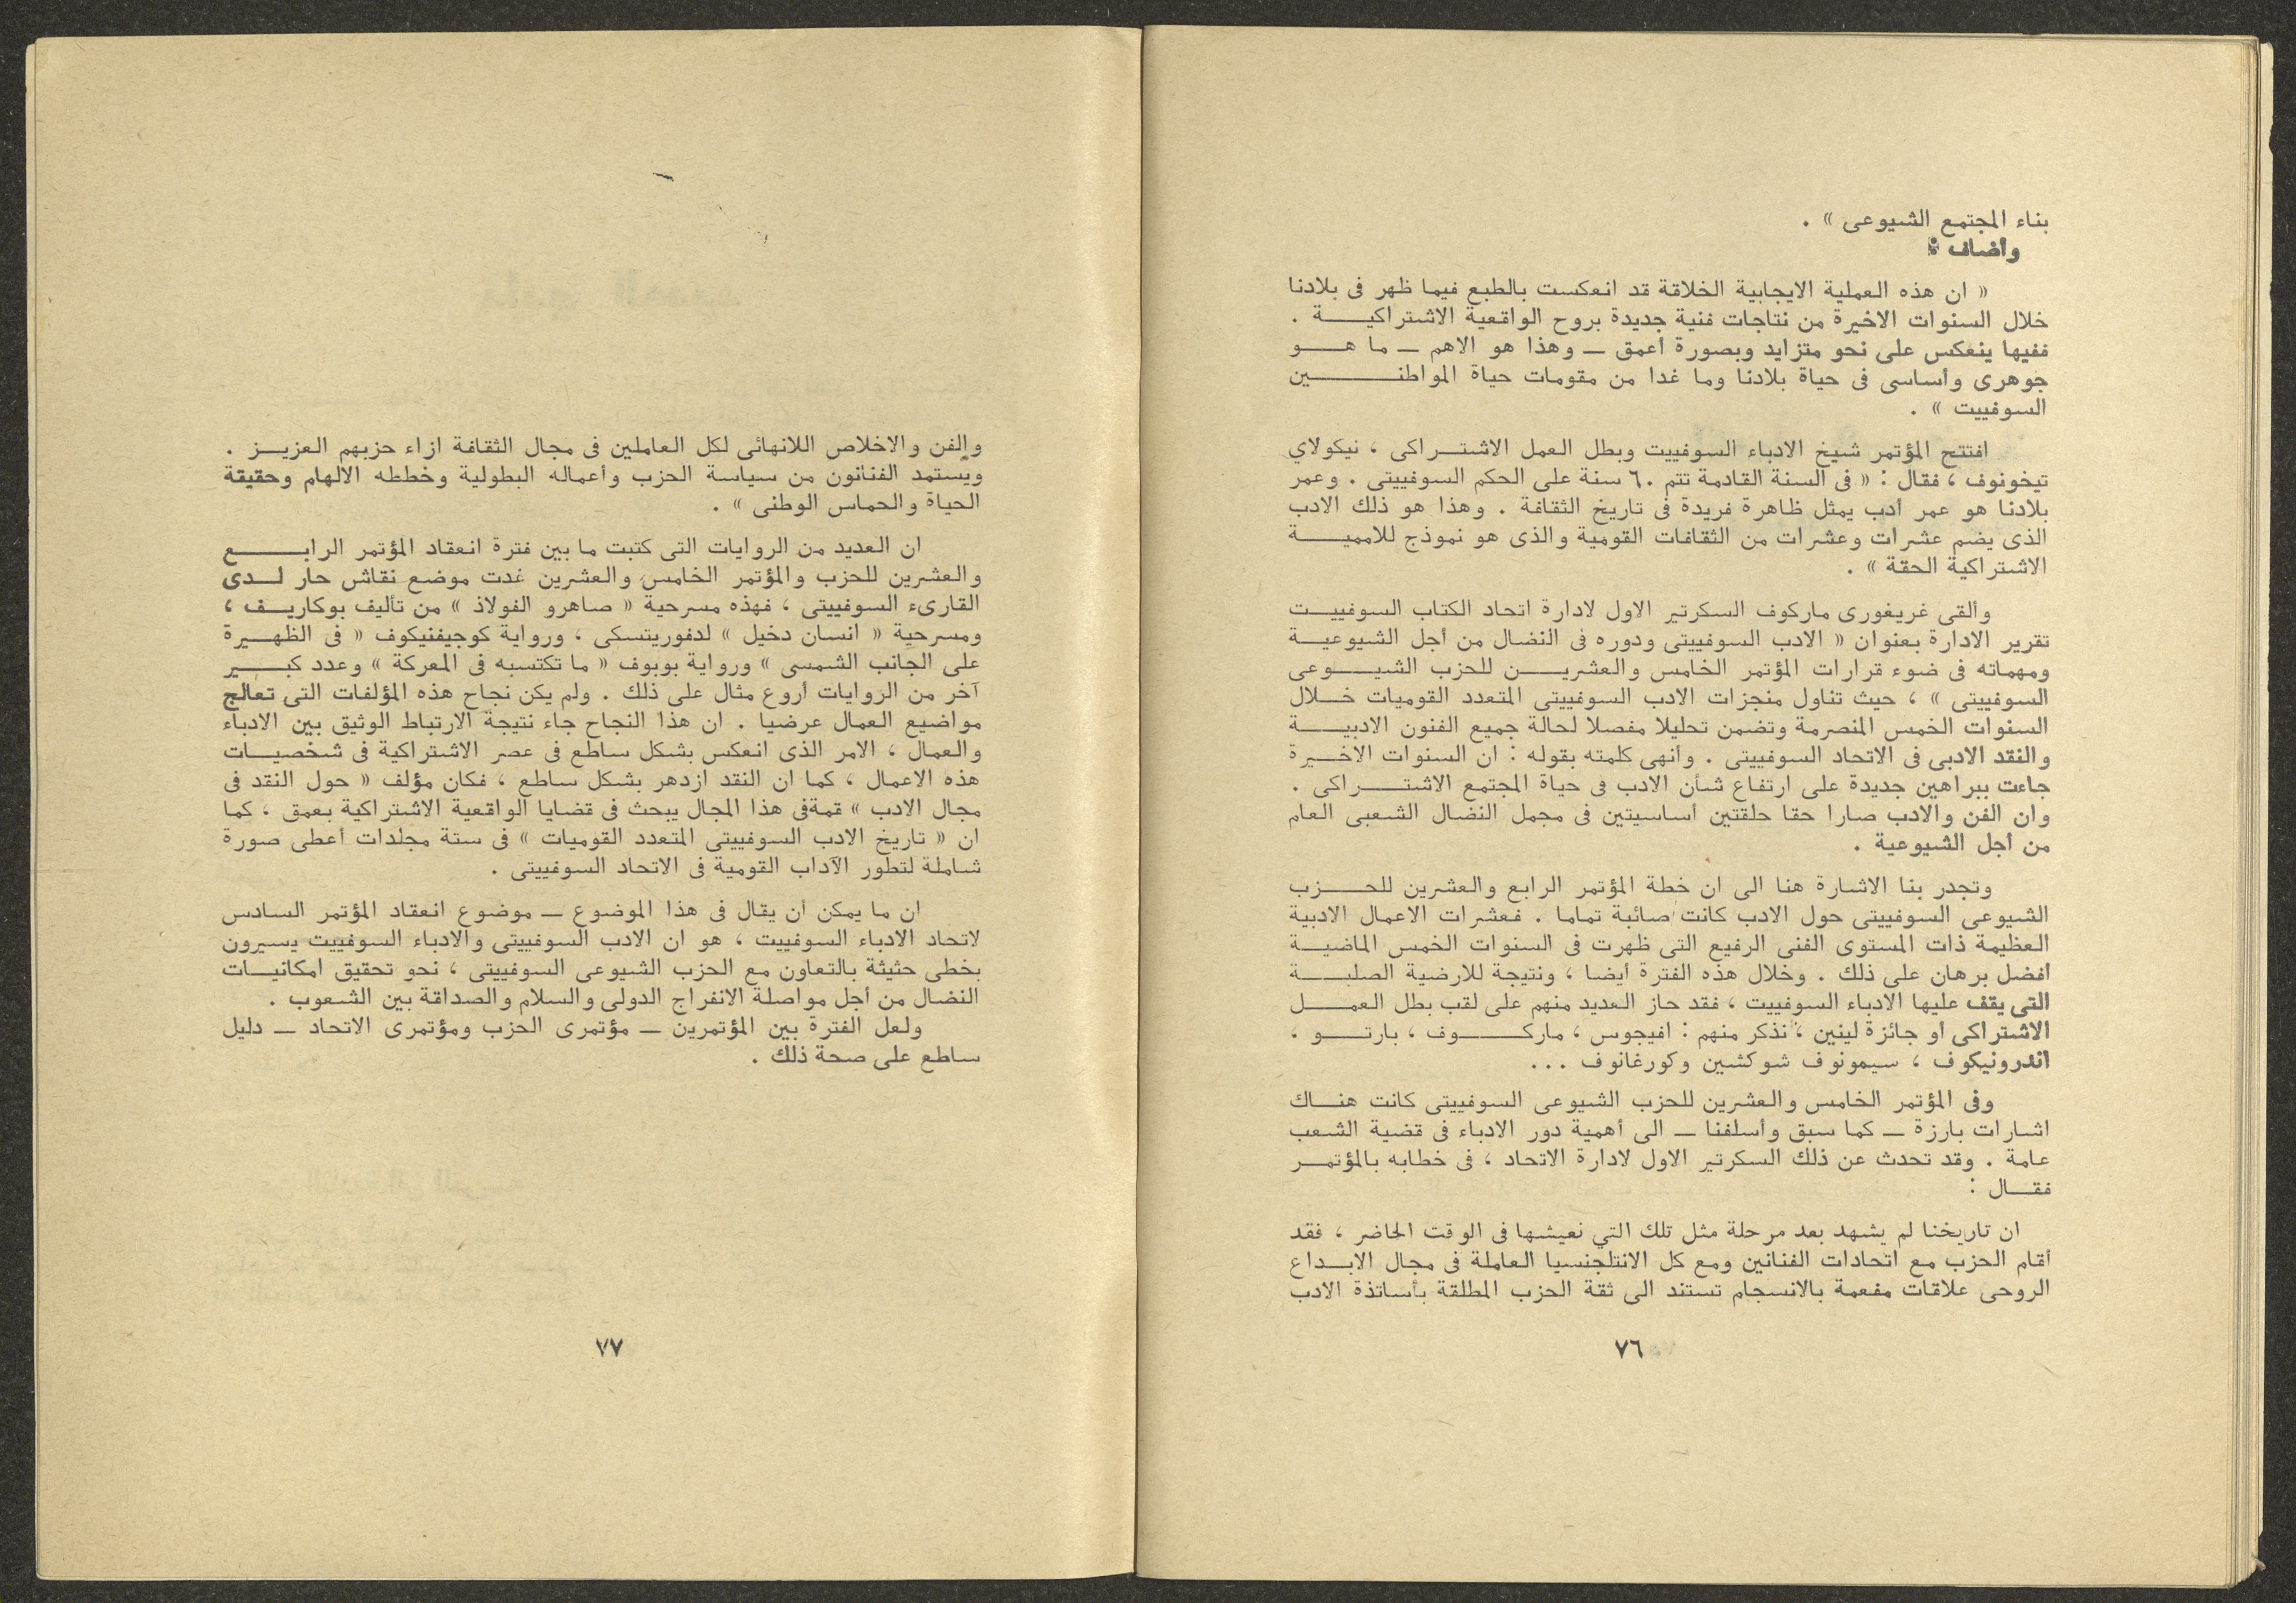 بناء المجتمع الشيوعى » .
وأضاف :
« ان هذه العملية الايجابية الخلاقة قد انعكست بالطبع فيما ظهر فى بلادنا
خلال السنوات الاخيرة من نتاجات فنية جديدة بروح الواقعية الاشتراكية .
ففيها ينعكس على نحو متزايد وبصورة أعمق ــ وهذا هو الاهم ــ ما هو
جوهرى وأساسى فى حياة بلادنا وما غدا من مقومات حياة المواطنين
السوفييت » .
افتتح المؤتمر شيخ الادباء السوفييت وبطل العمل الاشتراكى ، نيكولاي
تيخونوف ، فقال : « فى السنة القادمة تتم ٦٠ سنة على الحكم السوفييتى . وعمر
بلادنا هو عمر أدب يمثل ظاهرة فريدة فى تاريخ الثقافة . وهذا هو ذلك الادب
الذى يضم عشرات وعشرات من الثقافات القومية والذى هو نموذج للاممية
الاشتراكية الحقة » .
وألقى غريغورى ماركوف السكرتير الاول لادارة اتحاد الكتاب السوفييت
تقرير الادارة بعنوان « الادب السوفييتى ودوره فى النضال من أجل الشيوعية
ومهماته فى ضوء قرارات المؤتمر الخامس والعشرين للحزب الشيوعى
السوفييتى » ، حيث تناول منجزات الادب السوفييتى المتعدد القوميات خلال
السنوات الخمس المنصرمة وتضمن تحليلا مفصلا لحالة جميع الفنون الادبية
والنقد الادبى فى الاتحاد السوفييتى . وأنهى كلمته بقوله : ان السنوات الاخيرة
جاءت ببراهين جديدة على ارتفاع شأن الادب فى حياة المجتمع الاشتراكى .
وان الفن والادب صارا حقا حلقتين أساسيتين فى مجمل النضال الشعبى العام
من أجل الشيوعية .
وتجدر بنا الاشارة هنا الى ان خطة المؤتمر الرابع والعشرين للحزب
الشيوعى السوفييتى حول الادب كانت صائبة تماما . فعشرات الاعمال الادبية
العظيمة ذات المستوى الفنى الرفيع التى ظهرت فى السنوات الخمس الماضية
أفضل برهان على ذلك . وخلال هذه الفترة أيضا ، ونتيجة للارضية الصلبة
التى يقف عليها الادباء السوفييت ، فقد حاز العديد منهم على لقب بطل العمل
الاشتراكى أو جائزة لينين ، نذكر منهم : افيجوس ، ماركوف ، بارتو ،
اندرونيكوف ، سيمونوف شوكشين وكورغانوف ...
وفى المؤتمر الخامس والعشرين للحزب الشيوعى السوفييتى كانت هناك
اشارات بارزة ــ كما سبق وأسلفنا ــ الى أهمية دور الادباء فى قضية الشعب
عامة . وقد تحدث عن ذلك السكرتير الاول لادارة الاتحاد ، فى خطابه بالمؤتمر
فقال :
ان تاريخنا لم يشهد بعد مرحلة مثل تلك التي نعيشها فى الوقت الحاضر ، فقد
أقام الحزب مع اتحادات الفنانين ومع كل الانتلجنسيا العاملة فى مجال الابداع
الروحى علاقات مفعمة بالانسجام تستند الى ثقة الحزب المطلقة بأساتذة الادب
٧٦
والفن والاخلاص اللانهائى لكل العاملين فى مجال الثقافة ازاء حزبهم العزيز .
ويستمد الفنانون من سياسة الحزب وأعماله البطولية وخططه الالهام وحقيقة
الحياة والحماس الوطنى » .
ان العديد من الروايات التى كتبت ما بين فترة انعقاد المؤتمر الرابع
والعشرين للحزب والمؤتمر الخامس والعشرين غدت موضع نقاش حار لدى
القارىء السوفييتى ، فهذه مسرحية « صاهرو الفولاذ » من تأليف بوكاريف ،
ومسرحية « انسان دخيل » لدفوريتسكى ، ورواية كوجيفنيكوف « فى الظهيرة
على الجانب الشمسى » ورواية بوبوف « ما تكتسبه فى المعركة » وعدد كبير
آخر من الروايات أروع مثال على ذلك . ولم يكن نجاح هذه المؤلفات التى تعالج
مواضيع العمال عرضيا . ان هذا النجاح جاء نتيجة الارتباط الوثيق بين الادباء
والعمال ، الامر الذى انعكس بشكل ساطع فى عصر الاشتراكية فى شخصيات
هذه الاعمال ، كما ان النقد ازدهر بشكل ساطع ، فكان مؤلف « حول النقد فى
مجال الادب » قمةفى هذا المجال يبحث فى قضايا الواقعية الاشتراكية بعمق ، كما
ان « تاريخ الادب السوفييتى المتعدد القوميات » فى ستة مجلدات أعطى صورة
شاملة لتطور الآداب القومية فى الاتحاد السوفييتى .
ان ما يمكن أن يقال فى هذا الموضوع ــ موضوع انعقاد المؤتمر السادس
لاتحاد الادباء السوفييت ، هو ان الادب السوفييتى والادباء السوفييت يسيرون
بخطى حثيثة بالتعاون مع الحزب الشيوعى السوفييتى ، نحو تحقيق امكانيات
النضال من أجل مواصلة الانفراج الدولى والسلام والصداقة بين الشعوب .
ولعل الفترة بين المؤتمرين ــ مؤتمرى الحزب ومؤتمرى الاتحاد ــ دليل
ساطع على صحة ذلك .
٧٧